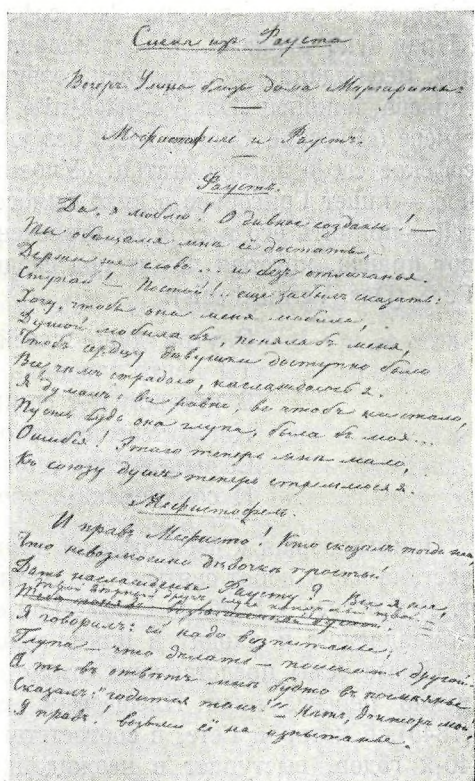 Сцена изъ Фауста
Вечеръ. Улица близъ дома Маргариты.
Мефистофель и Фаустъ.
Фаустъ.
Да, я люблю! О дивное созданье! —
Ты обещался мнѣ её достать,
Держи же слово... и безъ отлаганья.
Ступай! — Постой!.. еще забылъ сказать:
Хочу, чтобъ она меня любила,
Душой любила бъ, поняла бъ меня,
Чтобъ сердцу дѣвушки доступно было
Все, чѣмъ страдаю, наслаждаюсь я.
Я думалъ: все равно, во чтобъ ни стало,
Пусть будь она глупа, была бъ моя...
Ошибся! Этого теперь мнѣ мало,
Къ союзу душъ теперь стремлюся я.
Мефистофель.
И правъ Мефисто! Кто сказалъ тогда
Что невозможно дѣвочкѣ простой
Дать наслажденье Фаусту? — Все я,
Я говорилъ: ей надо воспитанье;
Глупа — что дѣлать — поискать другой.
А ты въ отвѣтъ мнѣ будто въ
Сказалъ: "годится тамъ!" — Нѣтъ, докторъ мой,
Я правъ! возьми её на испытанье.